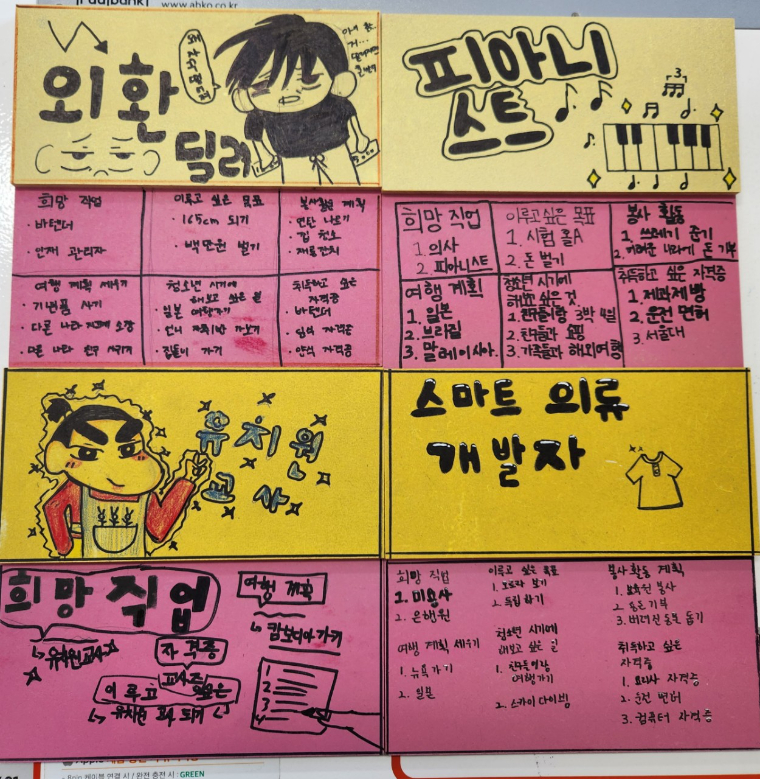 www.abko.co.kr
외환
딜러
피아니
스트
3
희망 직업
· 바텐더
· 인재 관리자
이루고 싶은 목표
· 165cm 되기
· 백만원 벌기
봉사활동 계획
· 연탄 나르기
· 집 청소
여행 계획 세우기
· 기념품 사기
· 다른 나라
· 다른 나라 친구 사귀기
청소년 시기에
해보고 싶은 일
· 일본 여행가기
· 언니 자취방 가보기
취득하고 싶은
자격증
· 바텐더
· 심리 자격증
· 양식 자격증
희망 직업
1. 의사
2. 피아니스트
이루고 싶은 목표
1. 시험 올A
2. 돈 벌기
봉사 활동
1. 쓰레기 줍기
2. 어려운 나라에 돈 기부
여행 계획
1. 일본
2. 브라질
3. 말레이시아.
청소년 시기에
해보고 싶은 것
1. 친구들이랑 3박 4일
2. 친구들과 쇼핑
3. 가족들과 해외여행
취득하고 싶은 자격증
1. 제과제빵
2. 운전 면허
3. 서울대
유치원
교사
스마트 의류
개발자
희망 직업
유치원교사
자격증
교사증
이루고 싶은
유치원 교사 되기
여행 계획
캄보디아 가기
1
2
3
4
희망 직업
1. 미용사
2. 은행원
이루고 싶은 목표
1. 오로라 보기
2. 독립하기
봉사활동 계획
1. 보육원 봉사
2. 용돈 기부
3. 버려진 동물 돕기
여행 계획 세우기
1. 뉴욕 가기
2. 일본
청소년 시기에
해보고 싶은 일
1. 친구들이랑
여행가기
2. 스카이 다이빙
취득하고 싶은
자격증
1. 요리사 자격증
2. 운전 면허
3. 컴퓨터 자격증
GREEN